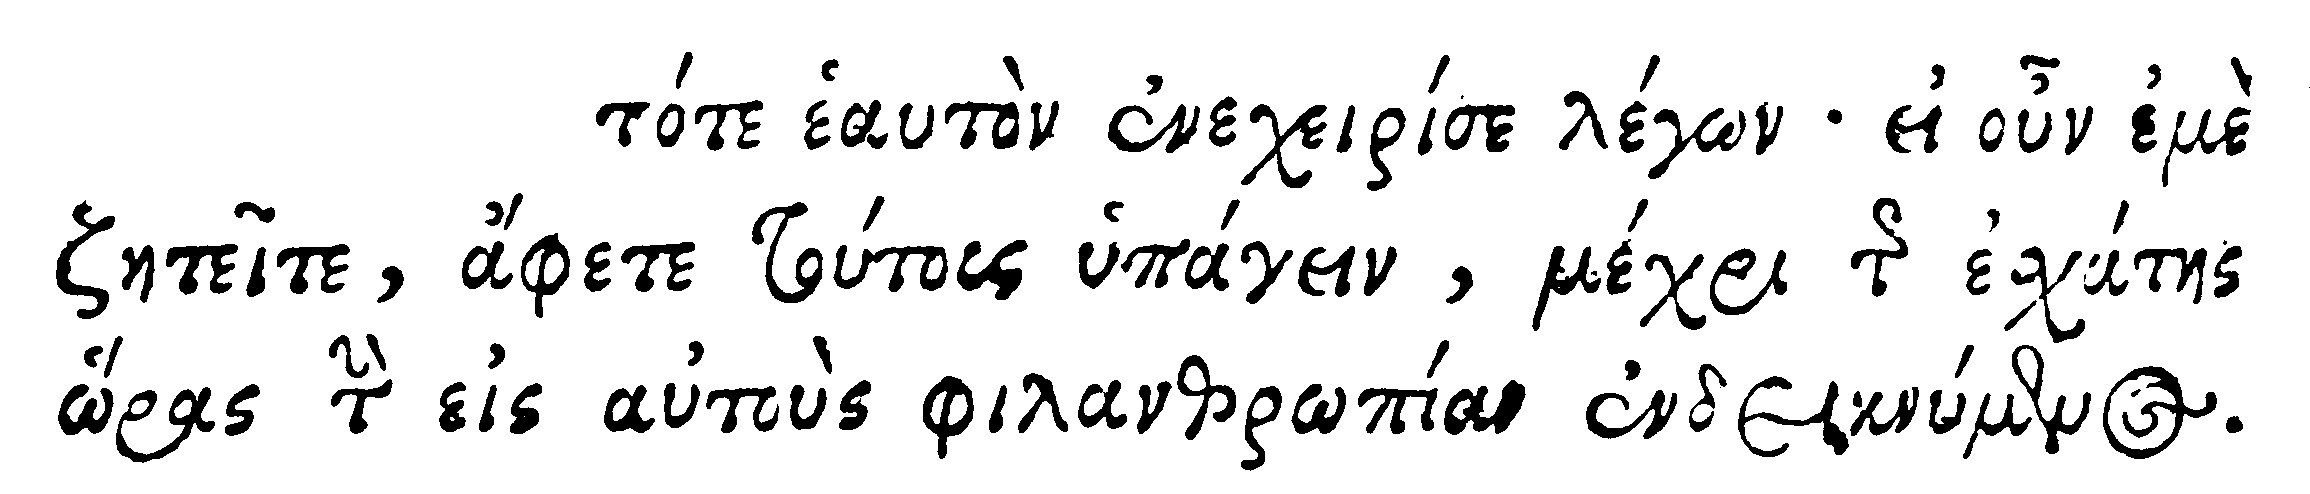 τότε ἑαυτὸν ἐνεχειρίσε λέγων · εἰ οὖν ἐμὲ
ζητεῖτε, ἄφετε τούτους ὑπάγειν, μέχρι τῆς ἐσχάτης
ὥρας τὴν εἰς αὐτοὺς φιλανθρωπίαν ἐνδεικνύμενος.